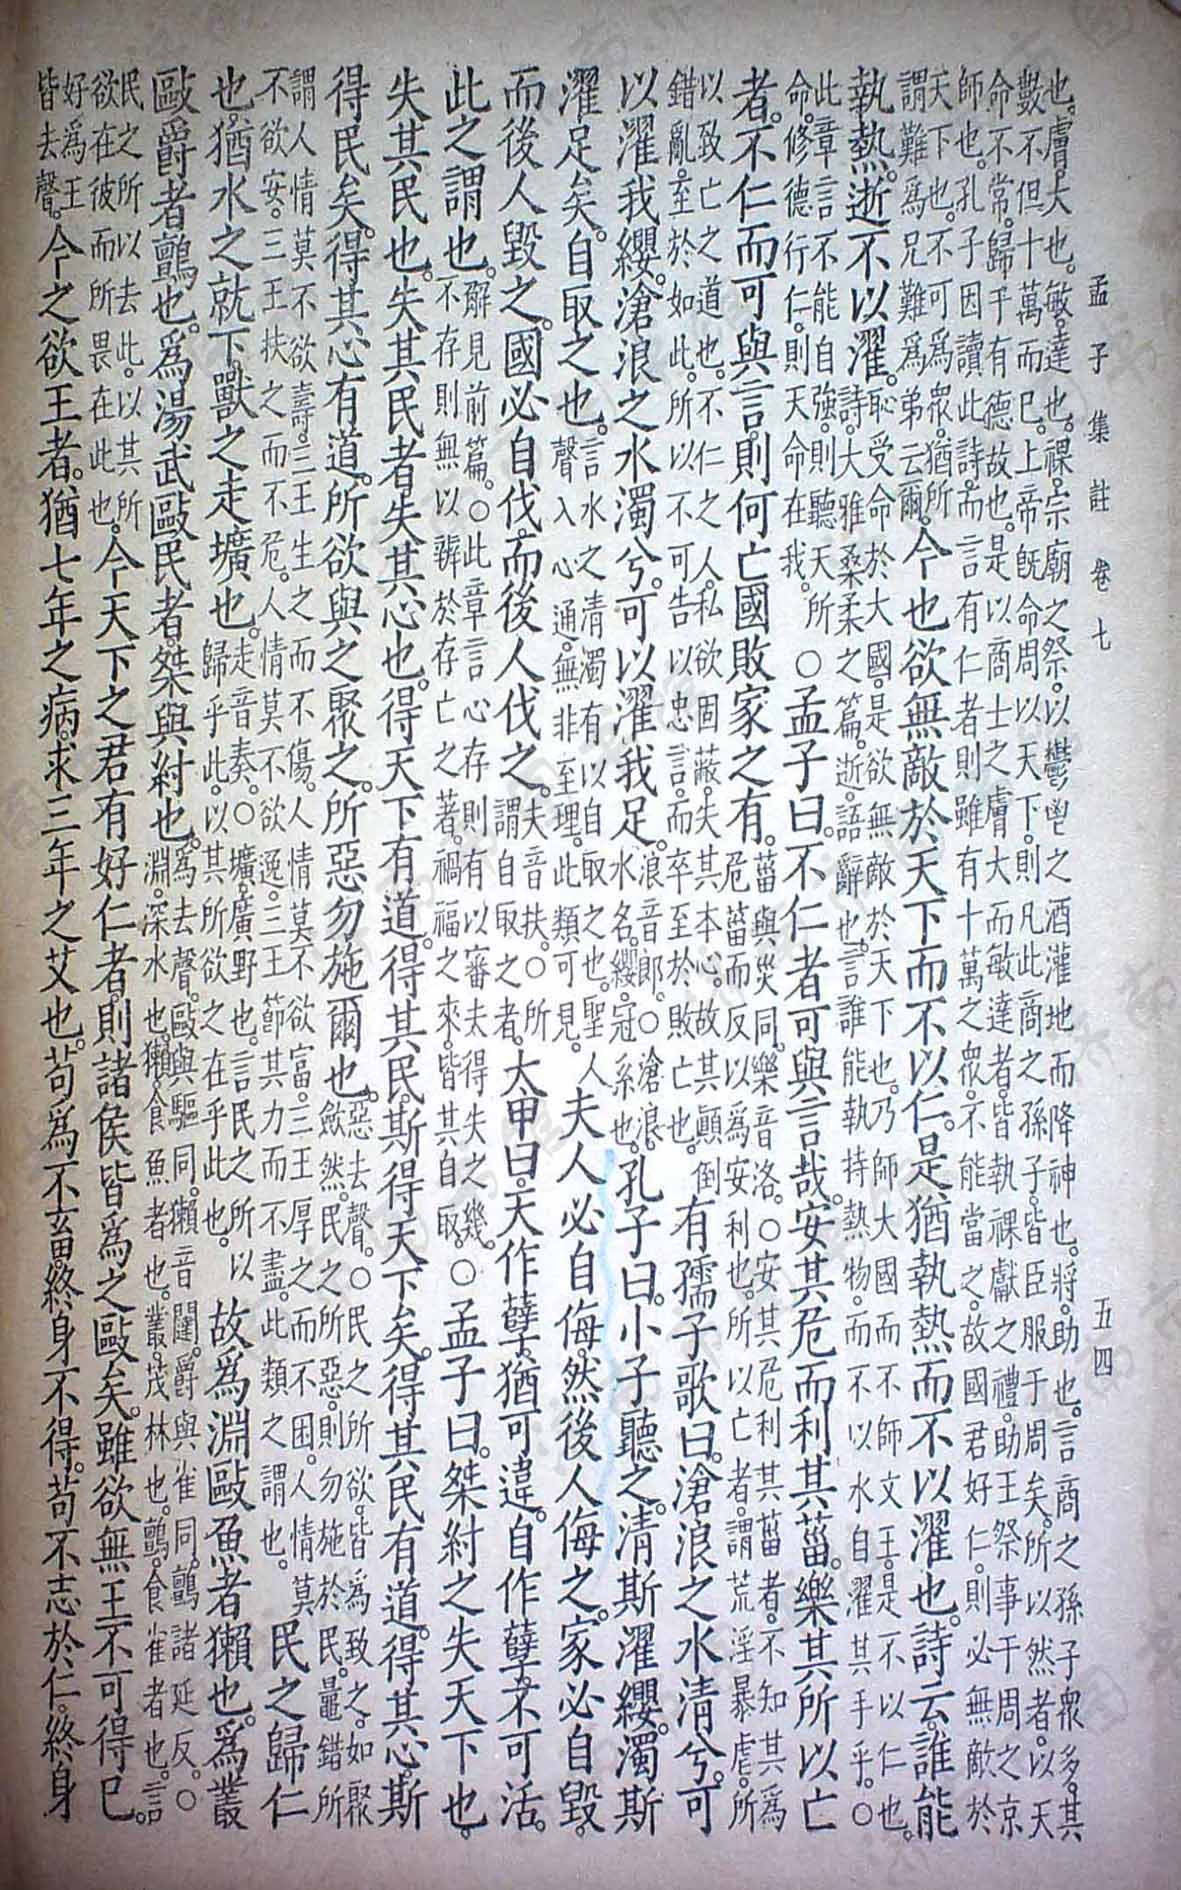 孟子集註卷七　五四
也。膚大也。敏達也。祼宗廟之祭。以鬱鬯之酒灌地而降神也。將助也。言商之孫子衆多。其
數不但十萬而已。上帝旣命周以天下。則凡此商之孫子。皆臣服于周矣。所以然者。以天
命不常。歸于有德故也。是以商士之膚大而敏達者。皆執祼獻之禮。助王祭事于周之京
師也。孔子因讀此詩。而言有仁者則雖有十萬之衆。不能當之。故國君好仁。則必無敵於
天下也。不可爲衆。猶所謂難爲兄難爲弟云爾。今也欲無敵於天下而不以仁。是猶執熱而不以濯也。詩云。誰能
執熱。逝不以濯。恥受命於大國。是欲無敵於天下也。乃師大國而不師文王。是不以仁也。詩大雅桑柔之篇。逝語辭也。言誰能執持熱物。而不以水自濯其手乎。○
此章言不能自強。則聽天所命。修德行仁。則天命在我。○孟子曰。不仁者可與言哉。安其危而利其菑。樂其所以亡
者。不仁而可與言。則何亡國敗家之有。菑與災同。樂音洛。○安其危利其菑者。不知其爲危菑而反以爲安利也。所以亡者。謂荒淫暴虐。所
以致亡之道也。不仁之人。私欲固蔽。失其本心。故其顚倒錯亂。至於如此。所以不可告以忠言。而卒至於敗亡也。有孺子歌曰。滄浪之水清兮。可
以濯我纓。滄浪之水濁兮。可以濯我足。浪音郎。○滄浪。水名。纓。冠系也。孔子曰。小子聽之。清斯濯纓。濁斯
濯足矣。自取之也。言水之清濁有以自取之也。聖人聲入心通。無非至理。此類可見。夫人必自侮。然後人侮之。家必自毀。
而後人毀之。國必自伐。而後人伐之。夫音扶。○所謂自取之者。太甲曰。天作孽。猶可違。自作孽。不可活。
此之謂也。解見前篇。○此章言心存則有以審夫得失之幾。不存則無以辨於存亡之著。禍福之來。皆其自取。○孟子曰。桀紂之失天下也。
失其民也。失其民者。失其心也。得天下有道。得其民。斯得天下矣。得其民有道。得其心。斯
得民矣。得其心有道。所欲與之聚之。所惡勿施爾也。惡去聲。○民之所欲。皆爲致之。如聚斂然。民之所惡。則勿施於民。鼂錯所
謂人情莫不欲壽。三王生之而不傷。人情莫不欲富。三王厚之而不困。人情莫不欲安。三王扶之而不危。人情莫不欲逸。三王節其力而不盡。此類之謂也。民之歸仁
也。猶水之就下。獸之走壙也。走音奏。○壙。廣野也。言民之所以歸乎此。以其所欲之在乎此也。故爲淵敺魚者。獺也。爲叢
敺爵者。鸇也。爲湯武敺民者。桀與紂也。爲去聲。敺與驅同。獺音闥。爵與雀同。鸇諸延反。○淵。深水也。獺。食魚者也。叢。茂林也。鸇。食雀者也。言
民之所以去此。以其所欲在彼而所畏在此也。今天下之君有好仁者。則諸侯皆爲之敺矣。雖欲無王。不可得已。
好爲王皆去聲。今之欲王者。猶七年之病。求三年之艾也。苟爲不畜。終身不得。苟不志於仁。終身